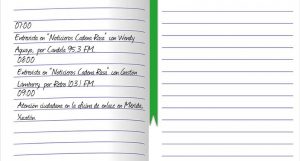 07:00
Entrevista en "Noticieros Cadena Rasa" con Wendy
Aguayo, por Candela 95.3 FM.
08:00
Entrevista en "Noticieros Cadena Rasa" con Gastón
Lamberry, por Retro 103.1 FM.
09:00
Atención ciudadana en la oficina de enlace en Mérida,
Yucatán